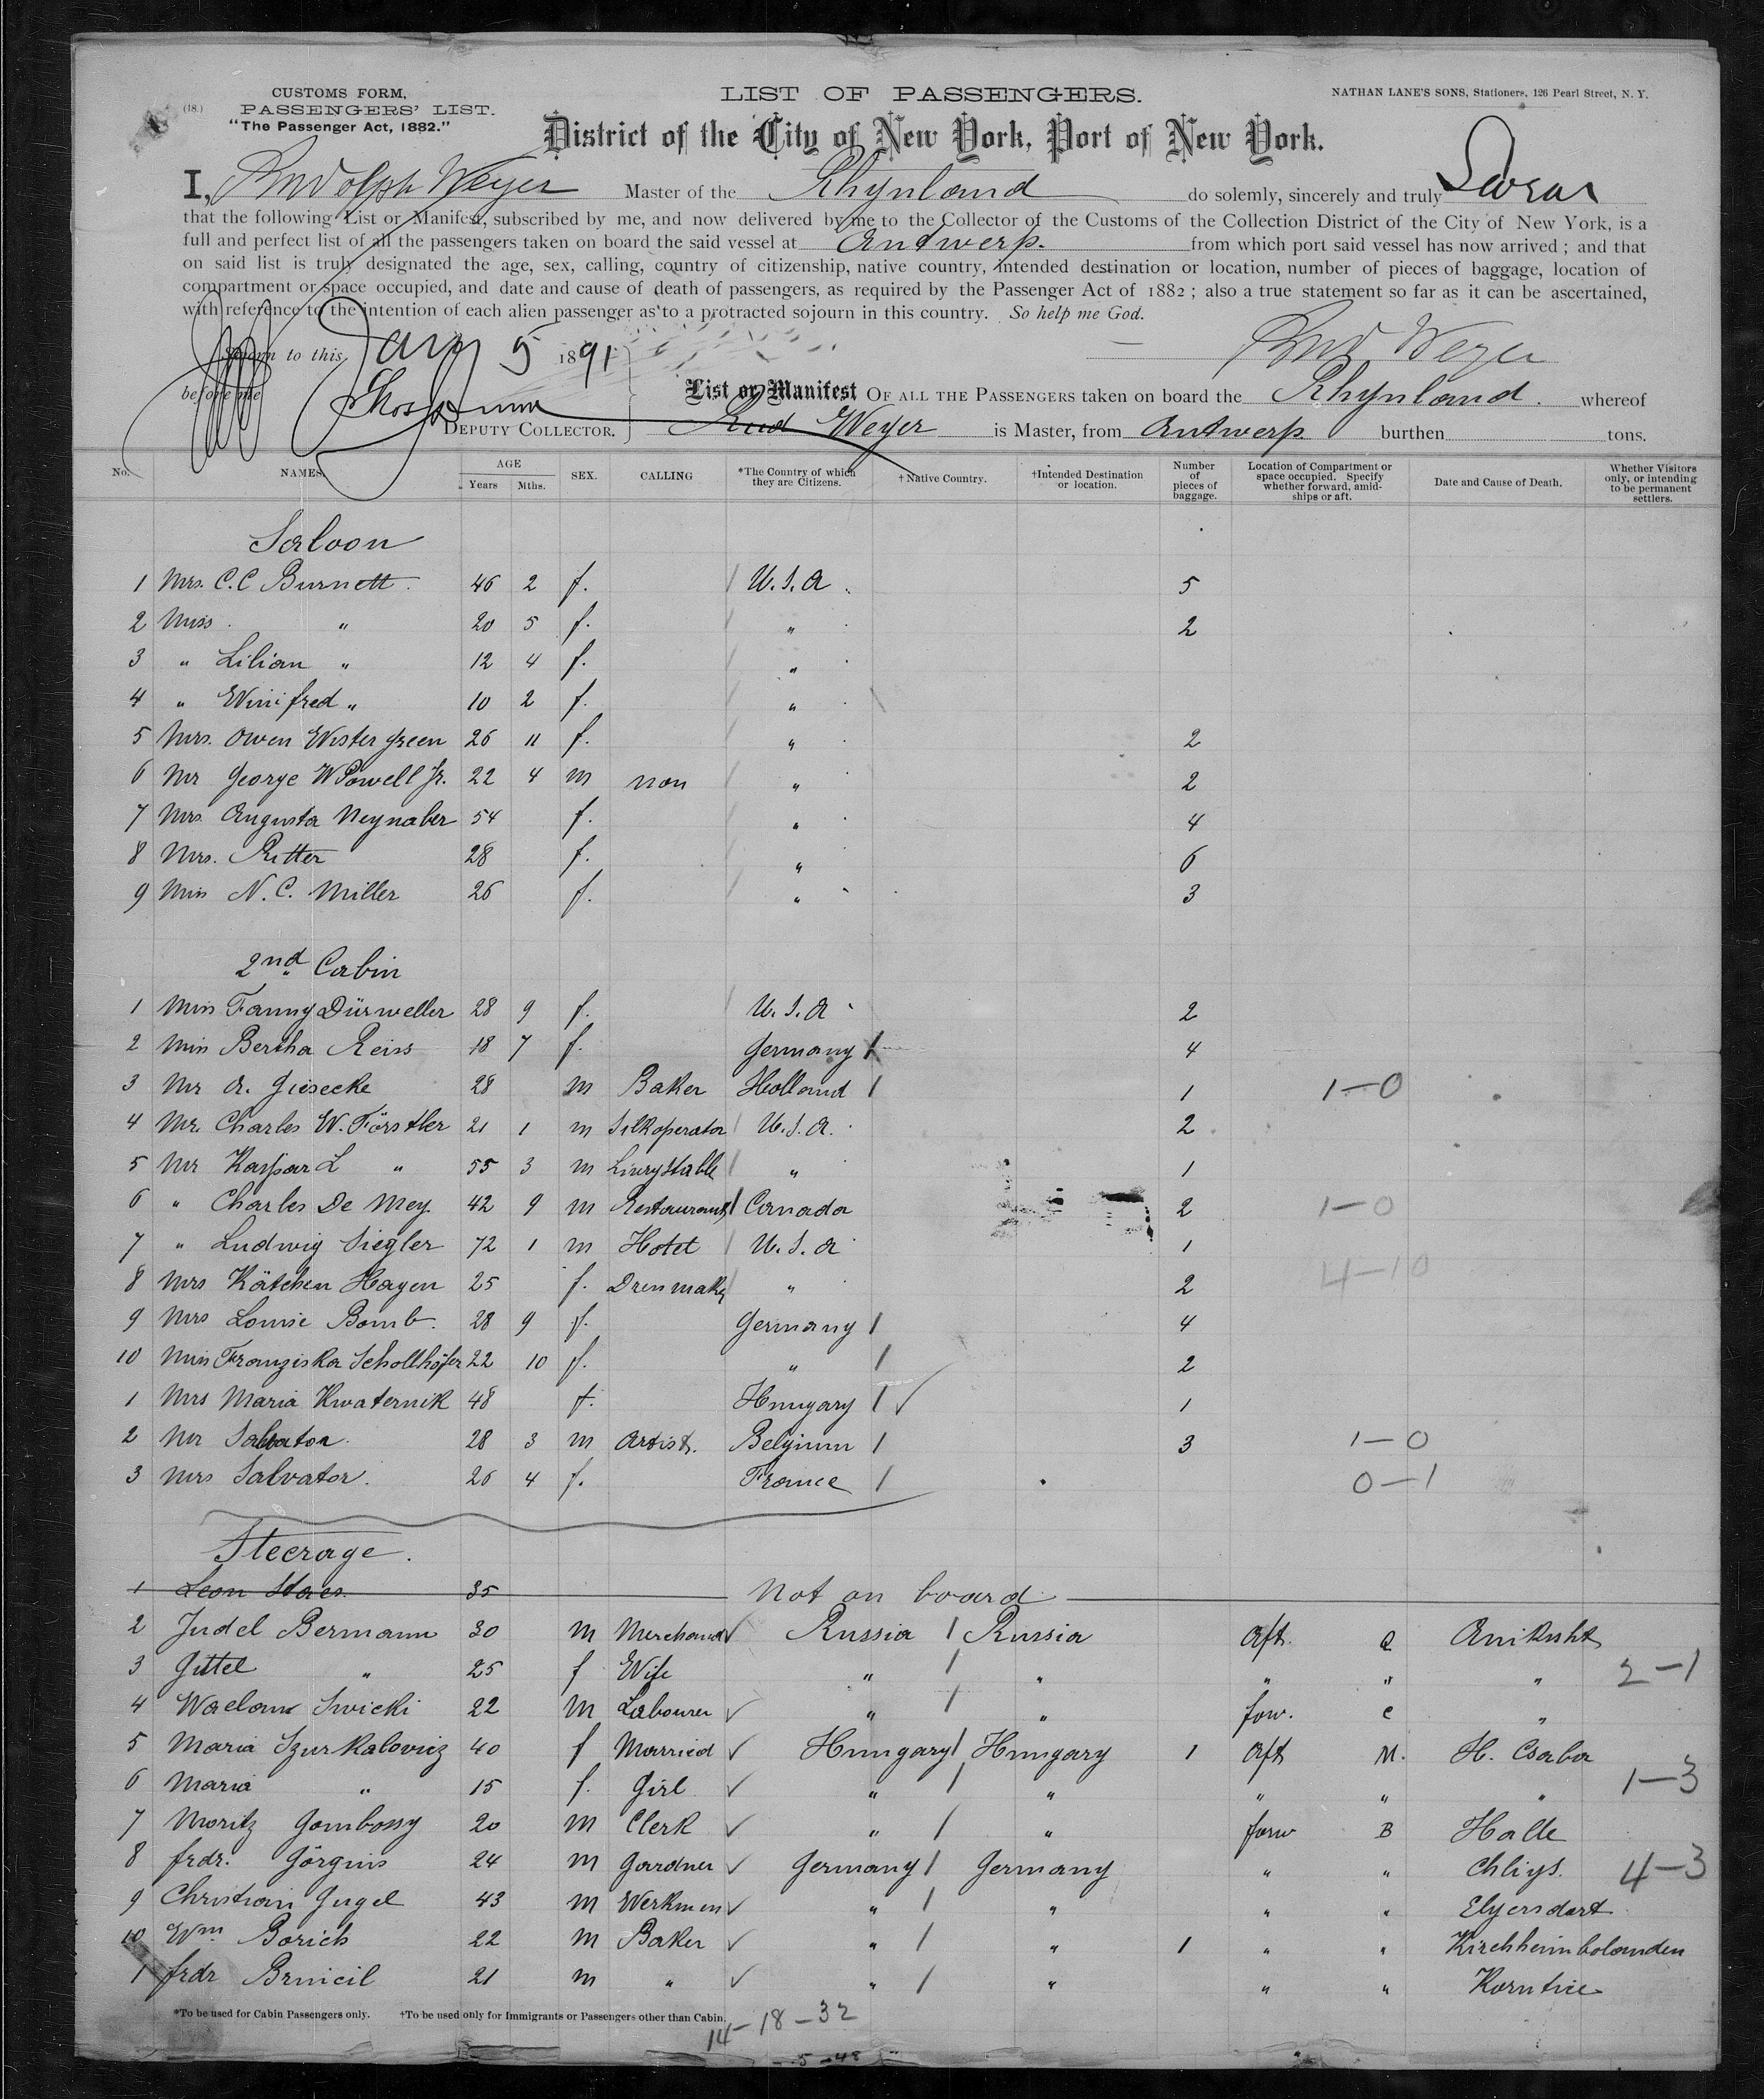 (18.)
CUSTOMS FORM,
PASSENGERS' LIST.
"The Passenger Act, 1882."
LIST OF PASSENGERS.
NATHAN LANE'S SONS, Stationers, 126 Pearl Street, N. Y.
District of the City of New York, Port of New York.
I, Rudolph Weyer Master of the Rhynland do solemnly, sincerely and truly Swear
that the following List or Manifest, subscribed by me, and now delivered by me to the Collector of the Customs of the Collection District of the City of New York, is a
full and perfect list of all the passengers taken on board the said vessel at Antwerp. from which port said vessel has now arrived; and that
on said list is truly designated the age, sex, calling, country of citizenship, native country, intended destination or location, number of pieces of baggage, location of
compartment or space occupied, and date and cause of death of passengers, as required by the Passenger Act of 1882; also a true statement so far as it can be ascertained,
with reference to the intention of each alien passenger as to a protracted sojourn in this country. So help me God.
Sworn to this Jany 5 1891 Rud Weyer
before me
List or Manifest OF ALL THE PASSENGERS taken on board the Rhynland. whereof
DEPUTY COLLECTOR. Rud Weyer is Master, from Antwerp burthen tons.
No. NAMES. AGE Years Mths. SEX. CALLING *The Country of which they are Citizens. †Native Country. †Intended Destination or location. Number of pieces of baggage. Location of Compartment or space occupied. Specify whether forward, amid-ships or aft. Date and Cause of Death. Whether Visitors only, or intending to be permanent settlers.
Saloon
1 Mrs. C.C Burnett. 46 2 f. U.S.A. 5
2 Miss " 20 5 f. " 2
3 " Lilian " 12 4 f. "
4 " Winifred " 10 2 f. "
5 Mrs. Owen Wister Green 26 11 f. " 2
6 Mr George W Powell Jr. 22 4 m non " 2
7 Mrs. Augusta Neynaber 54 f. " 4
8 Mrs. Ritter 28 f. " 6
9 Miss N. C. Miller 26 f. " 3
2nd Cabin
1 Miss Fanny Dürweller 28 9 f. U.S.A 2
2 Miss Bertha Reiss 18 7 f. Germany 4
3 Mr A. Giesecke 28 m Baker Holland 1 1-0
4 Mr. Charles W. Förstler 21 1 m Silkoperator U.S.A. 2
5 Mr Kaspar L " 55 3 m Livrystable " 1
6 " Charles De Mey. 42 9 m Restaurant Canada 2 1-0
7 " Ludwig Siegler 72 1 m Hotel U.S.A 1
8 Mrs Kätchen Hagen 25 f. Dressmakr " 2 4-10
9 Mrs Louise Bomb. 28 9 f. Germany 4
10 Miss Franziska Schollhöfer 22 10 f. " 2
1 Mrs Maria Kwaternik 48 f. Hungary 1
2 Mr Salvator. 28 3 m Artist. Belgium 3 1-0
3 Mrs Salvator. 26 4 f. France 0-1
Steerage.
1 Leon Staes. 35 Not on board
2 Judel Bermann 30 m Merchand Russia Russia Aft. Q Anikscht
3 Gittel " 25 f Wife " " " " " 2-1
4 Waclaw Swicki 22 m Labourer " " fow. C "
5 Maria Szurkalovicz 40 f Married Hungary Hungary 1 Aft M. H. Csaba
6 Maria " 15 f. Girl " " " " " 1-3
7 Moritz Gombossy 20 m Clerk " " forw B Halle
8 frdr. Görgius 24 m Gardner Germany Germany " " Chligs. 4-3
9 Christian Gugel 43 m Werkmen " " " " Elgersdort
10 Wm Borich 22 m Baker " " 1 " " Kirchheimbolanden
1 frdr 21 m " " " " " Korntice
*To be used for Cabin Passengers only. †To be used only for Immigrants or Passengers other than Cabin.
14-18-32
5-48